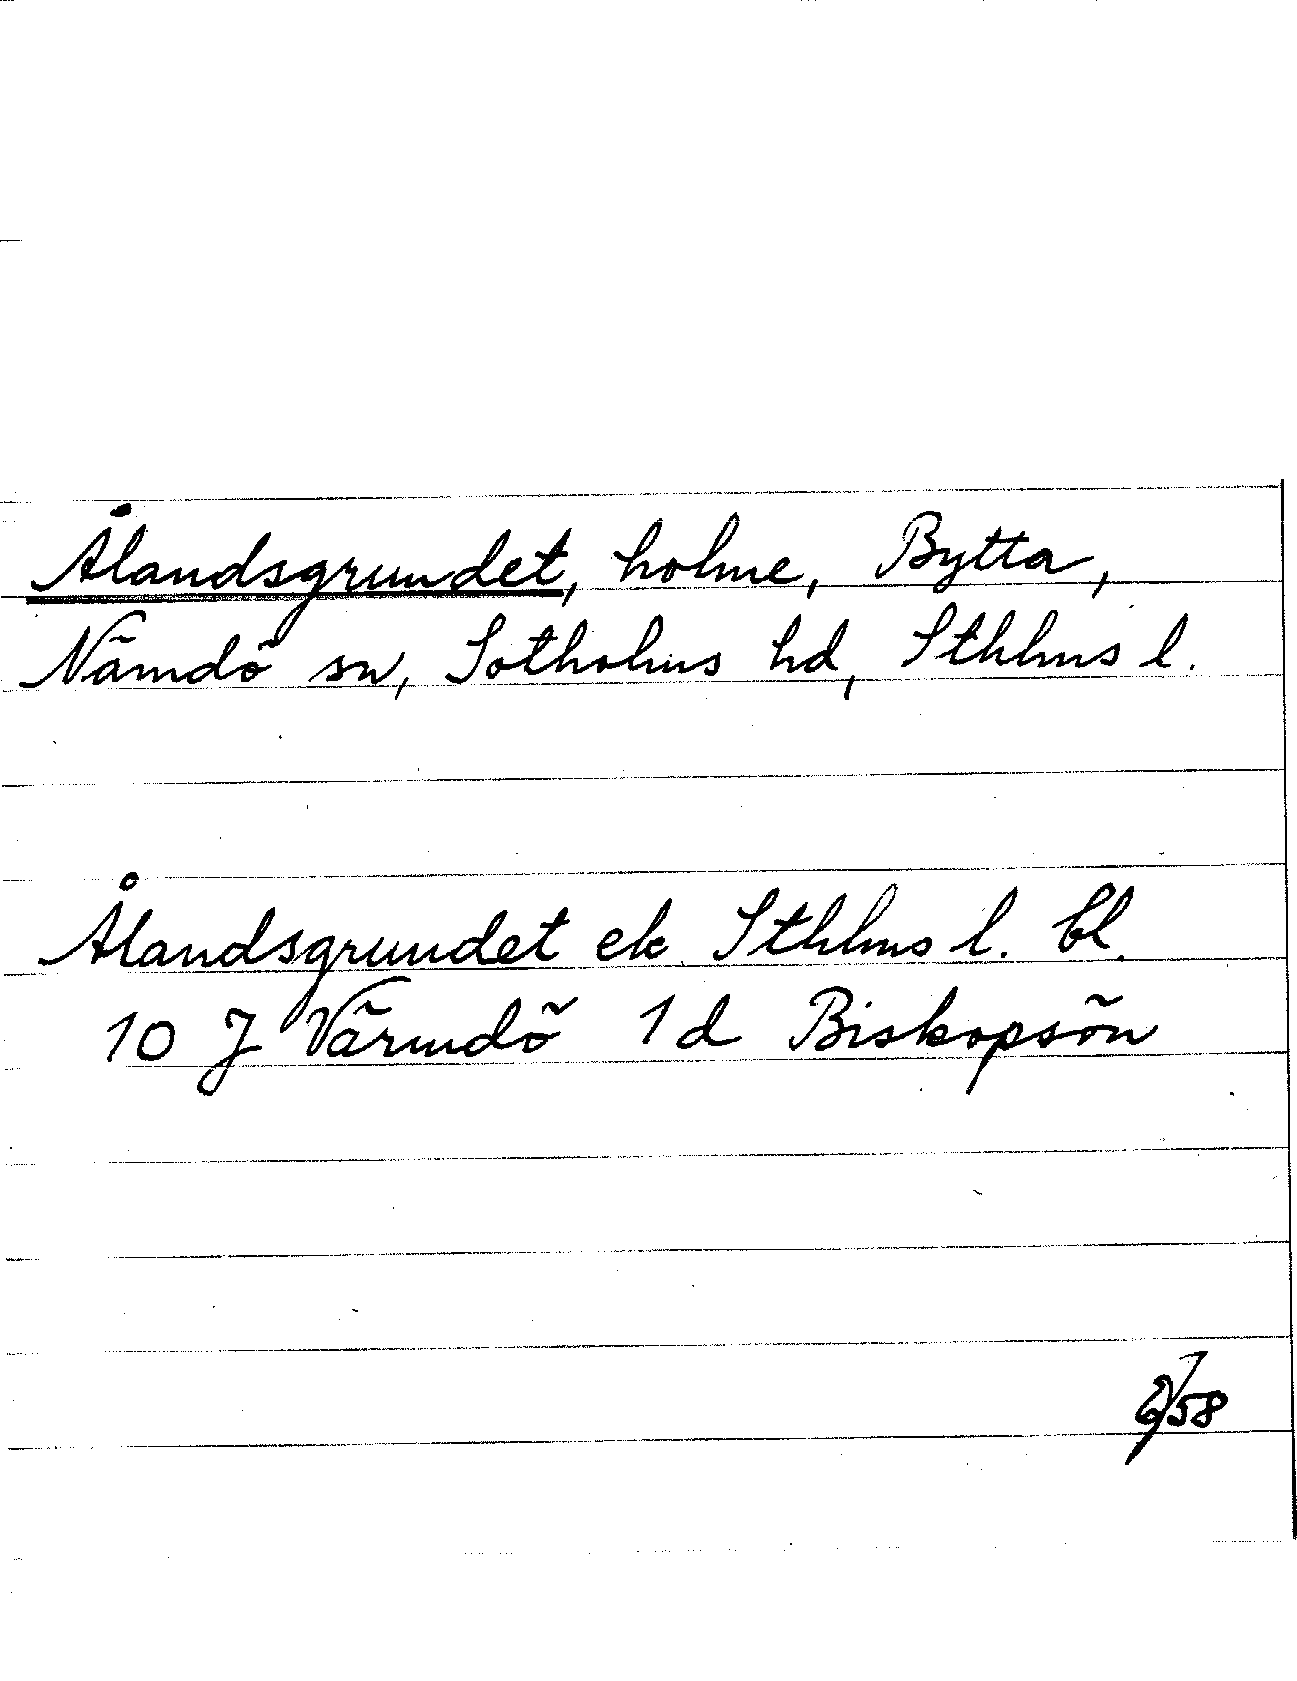 Ålandsgrundet, holme, Bytta,
Nämdö sn, Sotholms hd, Sthlms l.
Ålandsgrundet ek Sthlms l. bl.
10 J Värmdö 1d Biskopsön